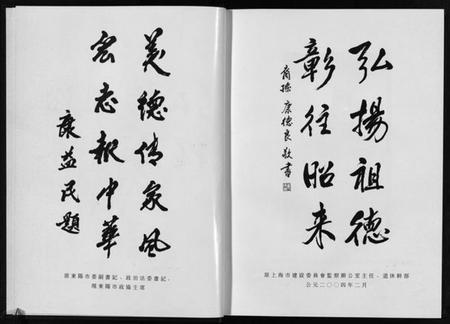 弘揚祖德
彰往昭来
裔孫 康德良 敬書
原上海市建設委員會監察辦公室主任、退休幹部
公元二〇〇四年二月
美德传家風
宏志报中華
康益民題
原東陽市委副書記、政法委書記、
現東陽市政協主席